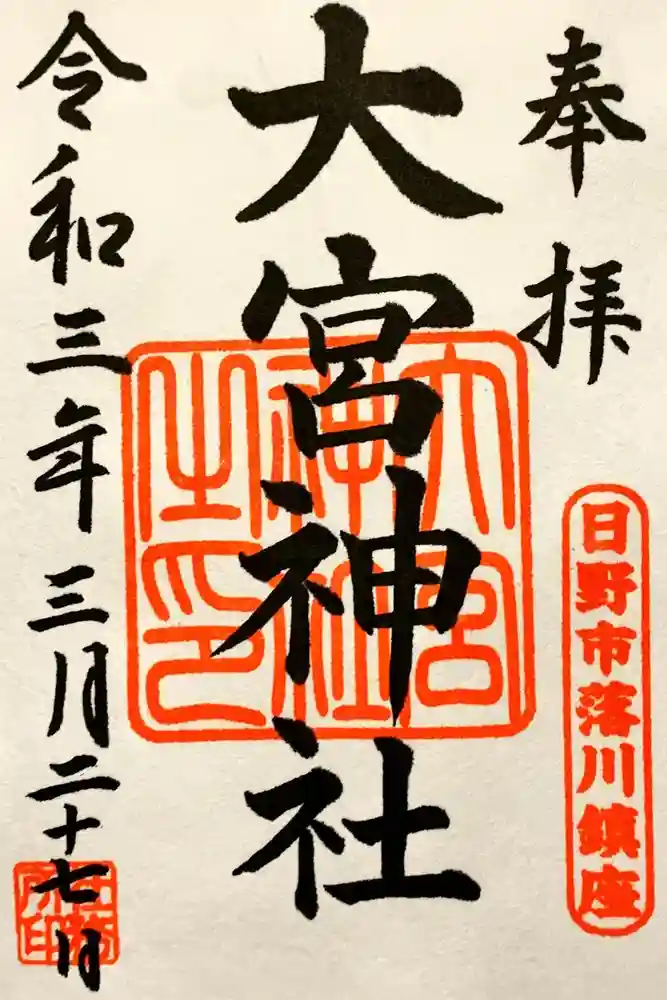 奉拝
日野市落川鎮座
大宮神社
大宮
神社
之印
令和三年三月二十七日
社務
所印